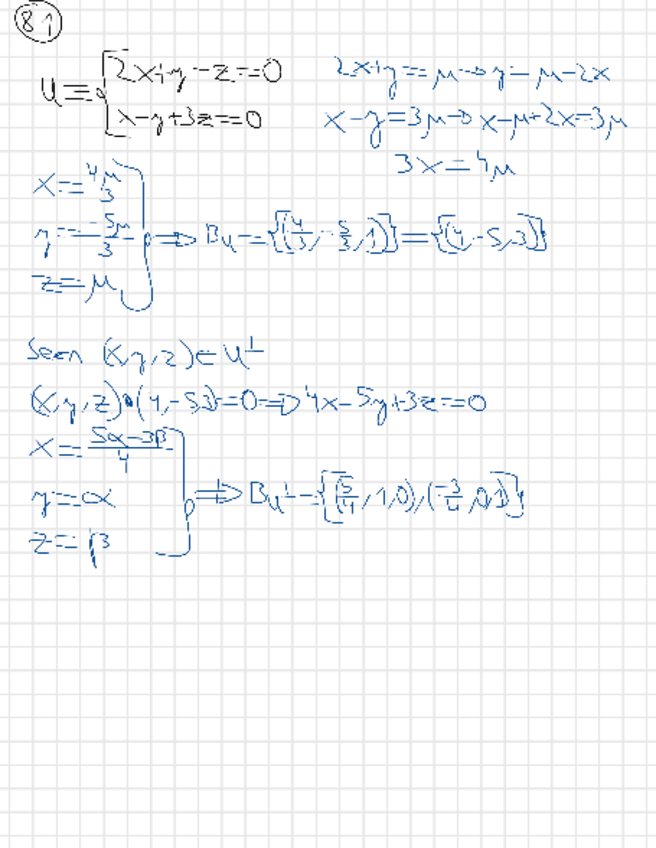 81
U≡{2x+y-z=0
x-y+3z=0
2x+y=μ→y=μ-2x
x-y=3μ→x-μ+2x=3μ
3x=4μ
x=4μ/3
y=-5μ/3
z=μ
⇒ Bu={(4/3,-5/3,1)}={(4,-5,3)}
Sean (x,y,z)∈U⊥
(x,y,z)•(4,-5,3)=0⇒4x-5y+3z=0
x=(5α-3β)/4
y=α
z=β
⇒ Bu⊥={(5/4,1,0),(-3/4,0,1)}